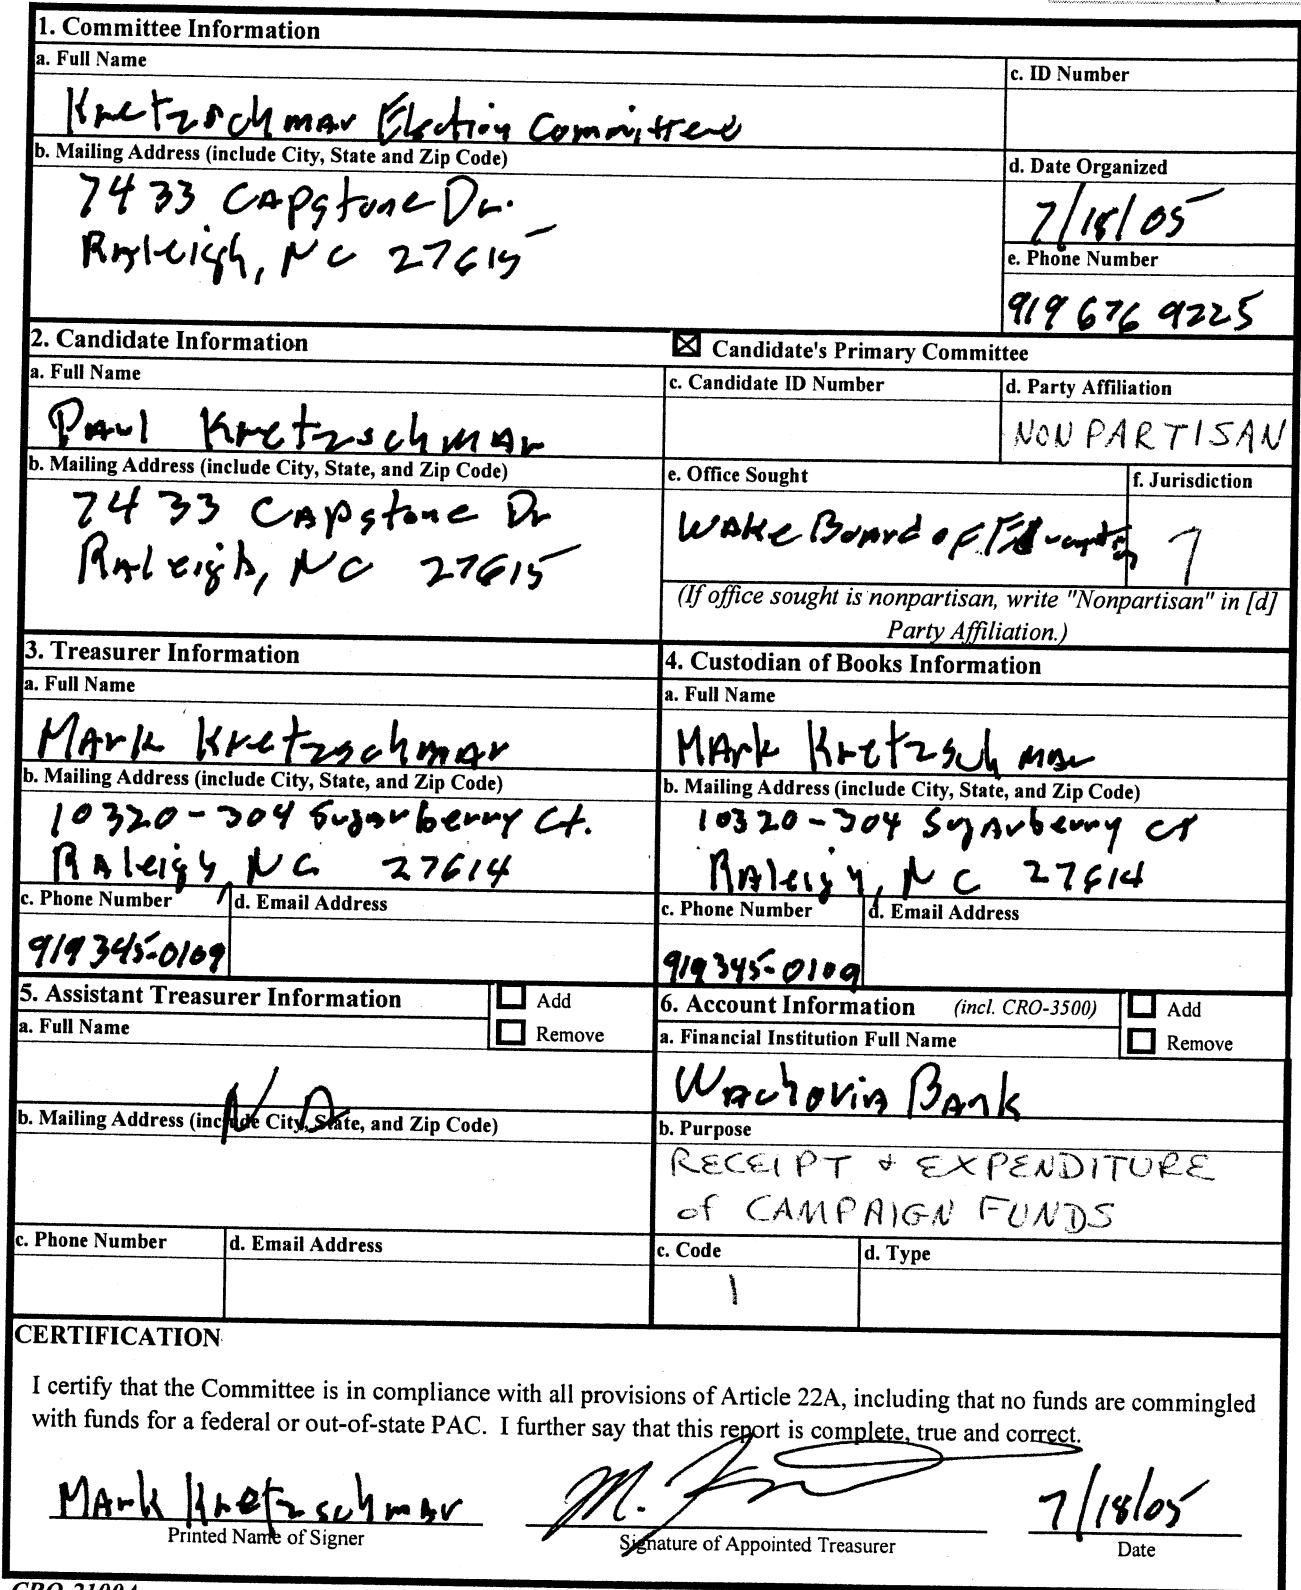 1. Committee Information
a. Full Name
c. ID Number
Kretzschmar Election Committee
b. Mailing Address (include City, State and Zip Code)
d. Date Organized
7433 Capstone Dr.
Raleigh, NC 27615
7/18/05
e. Phone Number
919 676 9225
2. Candidate Information
☒ Candidate's Primary Committee
a. Full Name
c. Candidate ID Number
d. Party Affiliation
Paul Kretzschmar
NONPARTISAN
b. Mailing Address (include City, State, and Zip Code)
e. Office Sought
f. Jurisdiction
7433 Capstone Dr
Raleigh, NC 27615
Wake Board of Education
7
(If office sought is nonpartisan, write "Nonpartisan" in [d]
Party Affiliation.)
3. Treasurer Information
a. Full Name
Mark Kretzschmar
b. Mailing Address (include City, State, and Zip Code)
10320-304 Sugarberry Ct.
Raleigh, NC 27614
c. Phone Number
d. Email Address
919 345-0109
4. Custodian of Books Information
a. Full Name
Mark Kretzschmar
b. Mailing Address (include City, State, and Zip Code)
10320-304 Sugarberry Ct
Raleigh, NC 27614
c. Phone Number
d. Email Address
919 345-0109
5. Assistant Treasurer Information
☐ Add
☐ Remove
a. Full Name
NA
b. Mailing Address (include City, State, and Zip Code)
c. Phone Number
d. Email Address
6. Account Information (incl. CRO-3500)
☐ Add
☐ Remove
a. Financial Institution Full Name
Wachovia Bank
b. Purpose
RECEIPT & EXPENDITURE
of CAMPAIGN FUNDS
c. Code
d. Type
1
CERTIFICATION
I certify that the Committee is in compliance with all provisions of Article 22A, including that no funds are commingled
with funds for a federal or out-of-state PAC. I further say that this report is complete, true and correct.
Mark Kretzschmar
M.
7/18/05
Printed Name of Signer
Signature of Appointed Treasurer
Date
CRO-2100A